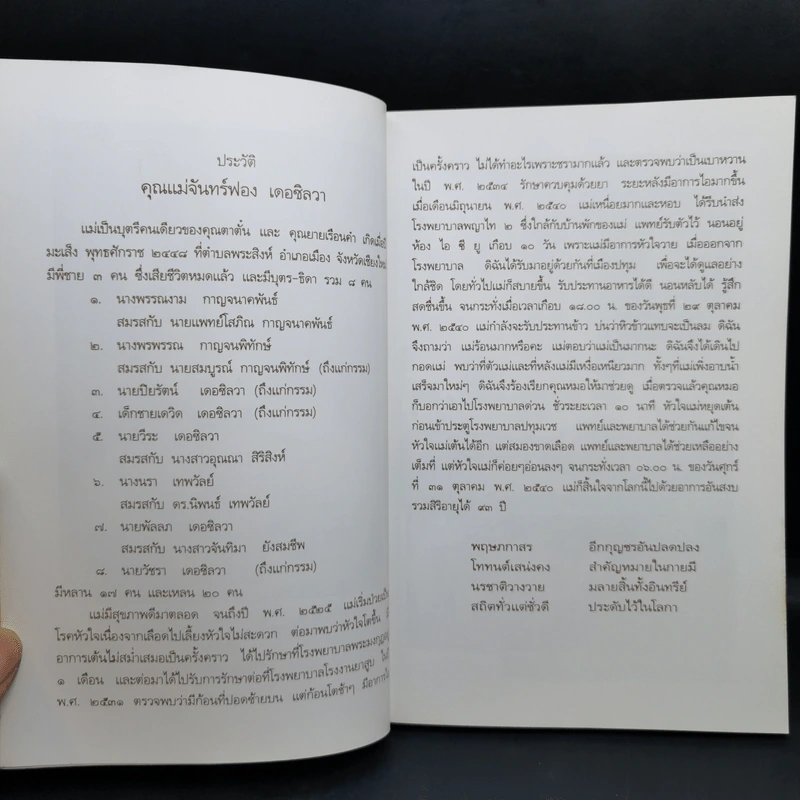 ประวัติ
คุณแม่จันทร์ฟอง เดอซิลวา
แม่เป็นบุตรีคนเดียวของคุณตาตั๋น และ คุณยายเรือนคำ เกิดเมื่อปี
มะเส็ง พุทธศักราช ๒๔๔๘ ที่ตำบลพระสิงห์ อำเภอเมือง จังหวัดเชียงใหม่
มีพี่ชาย ๓ คน ซึ่งเสียชีวิตหมดแล้ว และมีบุตร-ธิดา รวม ๘ คน
๑. นางพรรณงาม กาญจนาคพันธ์
สมรสกับ นายแพทย์โสภิณ กาญจนาคพันธ์
๒. นางพรพรรณ กาญจนพิทักษ์
สมรสกับ นายสมบูรณ์ กาญจนพิทักษ์ (ถึงแก่กรรม)
๓. นายปิยรัตน์ เดอซิลวา (ถึงแก่กรรม)
๔. เด็กชายเดวิด เดอซิลวา (ถึงแก่กรรม)
๕. นายวีระ เดอซิลวา
สมรสกับ นางสาวอุณณา สิริสิงห์
๖. นางนรา เทพวัลย์
สมรสกับ ดร.นิพนธ์ เทพวัลย์
๗. นายพัลลภ เดอซิลวา
สมรสกับ นางสาวจันทิมา ยังสมชีพ
๘. นายวัชรา เดอซิลวา (ถึงแก่กรรม)
มีหลาน ๑๗ คน และเหลน ๒๐ คน
แม่มีสุขภาพดีมาตลอด จนถึงปี พ.ศ. ๒๕๒๕ แม่เริ่มป่วยเป็น
โรคหัวใจเนื่องจากเลือดไปเลี้ยงหัวใจไม่สะดวก ต่อมาพบว่าหัวใจโตขึ้น
อาการเต้นไม่สม่ำเสมอเป็นครั้งคราว ได้ไปรักษาที่โรงพยาบาลพระมงกุฎ
๑ เดือน และต่อมาได้ไปรับการรักษาต่อที่โรงพยาบาลโรงงานยาสูบ
พ.ศ. ๒๕๓๑ ตรวจพบว่ามีก้อนที่ปอดซ้ายบน แต่ก้อนโตช้าๆ มีอาการ
เป็นครั้งคราว ไม่ได้ทำอะไรเพราะชรามากแล้ว และตรวจพบว่าเป็นเบาหวาน
ในปี พ.ศ. ๒๕๓๔ รักษาควบคุมด้วยยา ระยะหลังมีอาการไอมากขึ้น
เมื่อเดือนมิถุนายน พ.ศ. ๒๕๔๐ แม่เหนื่อยมากและหอบ ได้รีบนำส่ง
โรงพยาบาลพญาไท ๒ ซึ่งใกล้กับบ้านพักของแม่ แพทย์รับตัวไว้ นอนอยู่
ห้อง ไอ ซี ยู เกือบ ๑๐ วัน เพราะแม่มีอาการหัวใจวาย เมื่อออกจาก
โรงพยาบาล ดิฉันได้รับมาอยู่ด้วยกันที่เมืองปทุม เพื่อจะได้ดูแลอย่าง
ใกล้ชิด โดยทั่วไปแม่ก็สบายขึ้น รับประทานอาหารได้ดี นอนหลับได้ รู้สึก
สดชื่นขึ้น จนกระทั่งเมื่อเวลาเกือบ ๑๘.๐๐ น. ของวันพุธที่ ๒๙ ตุลาคม
พ.ศ. ๒๕๔๐ แม่กำลังจะรับประทานข้าว บ่นว่าหิวข้าวแทบจะเป็นลม ดิฉัน
จึงถามว่า แม่ร้อนมากหรือคะ แม่ตอบว่าแม่เป็นมากนะ ดิฉันจึงได้เดินไป
กอดแม่ พบว่าที่ตัวแม่และที่หลังแม่มีเหงื่อเหนียวมาก ทั้งๆที่แม่เพิ่งอาบน้ำ
เสร็จมาใหม่ๆ ดิฉันจึงร้องเรียกคุณหมอให้มาช่วยดู เมื่อตรวจแล้วคุณหมอ
ก็บอกว่าเอาไปโรงพยาบาลด่วน ชั่วระยะเวลา ๑๐ นาที หัวใจแม่หยุดเต้น
ก่อนเข้าประตูโรงพยาบาลปทุมเวช แพทย์และพยาบาลได้ช่วยกันแก้ไขจน
หัวใจแม่เต้นได้อีก แต่สมองขาดเลือด แพทย์และพยาบาลได้ช่วยเหลืออย่าง
เต็มที่ แต่หัวใจแม่ก็ค่อยๆอ่อนลงๆ จนกระทั่งเวลา ๐๖.๐๐ น. ของวันศุกร์
ที่ ๓๑ ตุลาคม พ.ศ. ๒๕๔๐ แม่ก็สิ้นใจจากโลกนี้ไปด้วยอาการอันสงบ
รวมสิริอายุได้ ๙๓ ปี
พฤษภกาสร อีกกุญชรอันปลดปลง
โททนต์เสน่งคง สำคัญหมายในกายมี
นรชาติวางวาย มลายสิ้นทั้งอินทรีย์
สถิตทั่วแต่ชั่วดี ประดับไว้ในโลกา